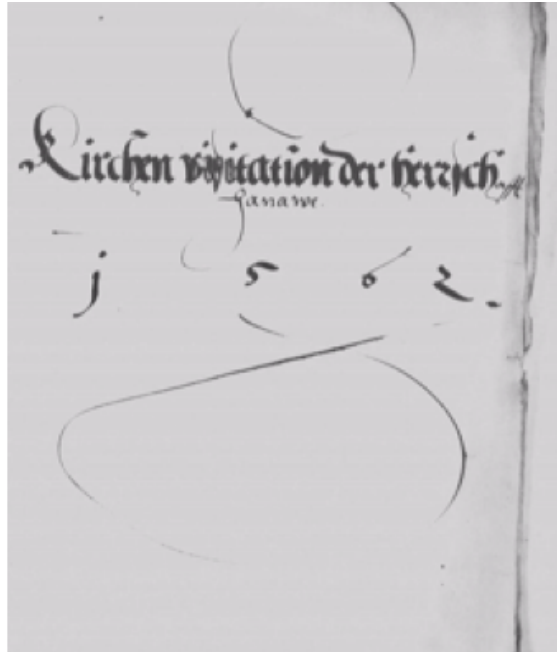 Kirchen visitation der herrsch
Hanawe.
1562.